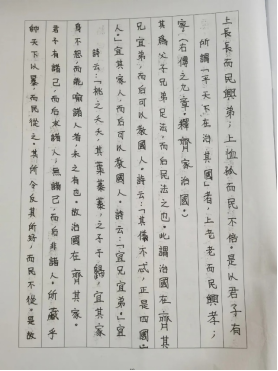 帥天下以暴，而民從之。其所令反其所好，而民不從。是故
君子有諸己，而后求諸人；無諸己，而后非諸人。所藏乎
身不恕，而能喻諸人者，未之有也。故治國在齊其家。
詩云：「桃之夭夭，其葉蓁蓁，之子于歸，宜其家
人。」宜其家人，而后可以教國人。詩云：「宜兄宜弟。」宜
兄宜弟，而后可以教國人。詩云：「其儀不忒，正是四國
其為父子兄弟足法，而后民法之也。此謂治國在齊其
家。(右傳之九章．釋齊家治國。)
所謂「平天下在治其國」者：上老老而民興孝；
上長長而民興弟；上恤孤而民不倍。是以君子有